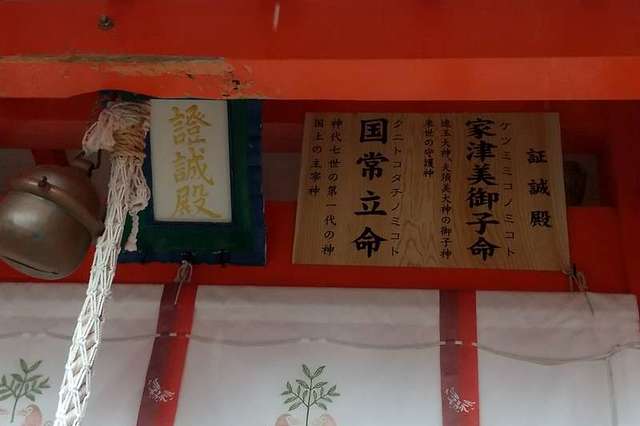 證誠殿
証誠殿
ケツミミコノミコト
家津美御子命
速玉大神、夫須美大神の御子神
来世の守護神
クニトコタチノミコト
国常立命
神代七世の第一代の神
国土の主宰神